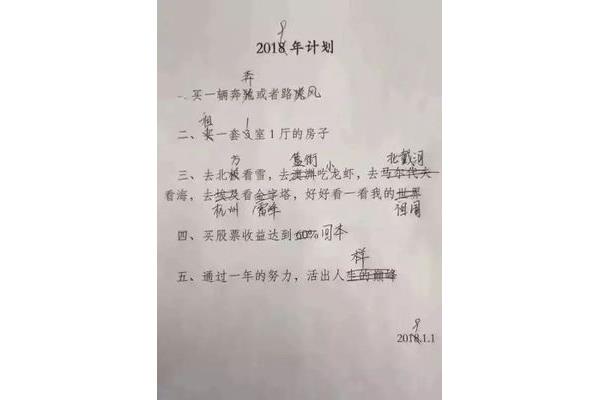 9
2018年计划
奔
一、买一辆奔驰或者路虎风
租 1
二、买一套3室1厅的房子
方 簋街 小 北戴河
三、去北极看雪，去澳洲吃龙虾，去马尔代夫
看海，去埃及看金字塔，好好看一看我的世界
杭州 雷峰 祖国
四、买股票收益达到 回本
样
五、通过一年的努力，活出人生的巅峰
9
2018.1.1